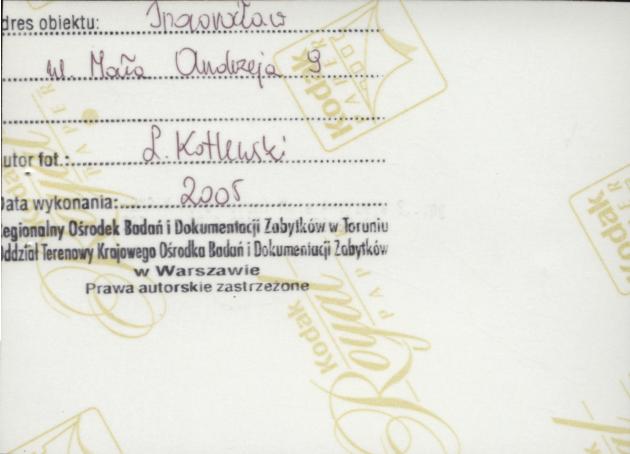 dres obiektu: Inowrocław
ul. Mała Andrzeja 9
utor fot.: L. Kotlewski
Data wykonania: 2005
Regionalny Ośrodek Badań i Dokumentacji Zabytków w Toruniu
Oddział Terenowy Krajowego Ośrodka Badań i Dokumentacji Zabytków
w Warszawie
Prawa autorskie zastrzeżone
Kodak
PAPER
Kodak
Royal
PAPER
Kodak
Kodak
Royal
PAPER
Kodak